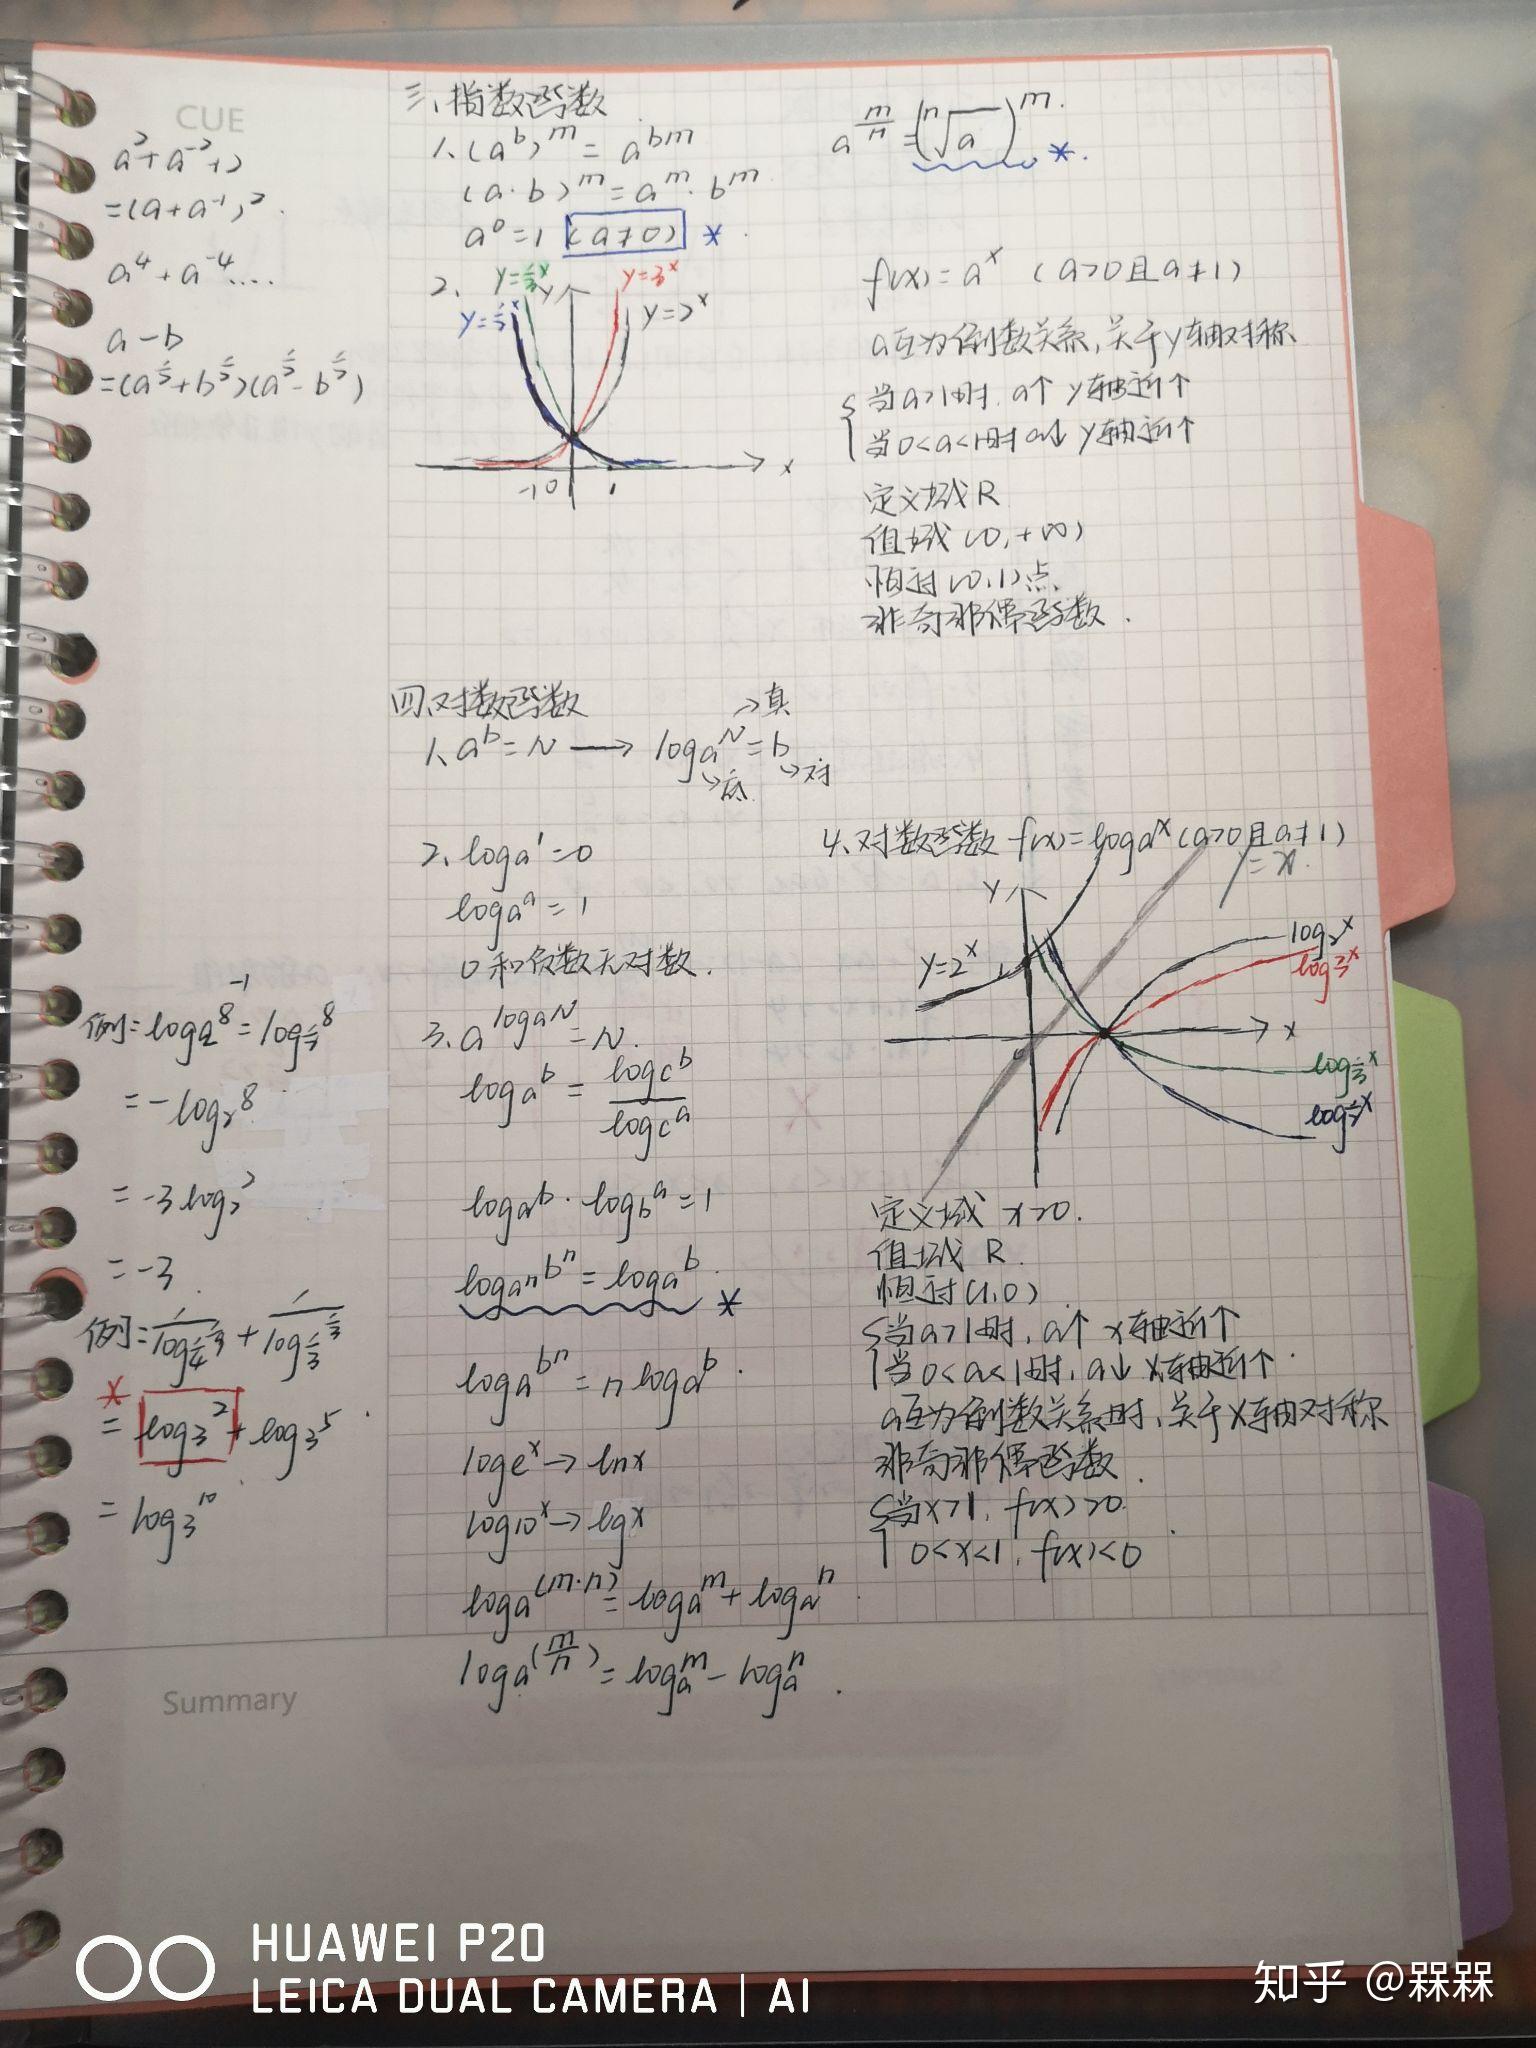 CUE
a²+a⁻²+2
=(a+a⁻¹)²
a⁴+a⁻⁴....
a-b
=(a^½+b^½)(a^½-b^½)
三、指数函数
1、(a^b)^m=a^bm
(a·b)^m=a^m·b^m
a⁰=1 (a≠0) *
a^(m/n)=(ⁿ√a)^m *.
2、
y=⅓^x
y=3^x
y=½^x
y=2^x
y
x
-1 0 1
f(x)=a^x (a>0且a≠1)
a互为倒数关系,关于y轴对称
当a>1时,a↑ y轴近↑
当0<a<1时 a↓ y轴近↑
定义域R
值域(0,+∞)
恒过(0,1)点
非奇非偶函数.
四、对数函数
1、a^b=N → log_a^N=b
→真
→底
→对
2、log_a^1=0
log_a^a=1
0和负数无对数.
3、a^(log_a N)=N.
log_a^b=log_c^b/log_c^a
log_a^b·log_b^a=1
log_aⁿ^bⁿ=log_a^b. *
log_a^bⁿ=n log_a^b.
log_e^x→ln x
log_10^x→lg x
log_a^(m·n)=log_a^m+log_a^n.
log_a^(m/n)=log_a^m-log_a^n.
=-log_2^8
=-3log_2^2
=-3.
*
=log_3^2+log_3^5.
=log_3^10
4、对数函数 f(x)=log_a^x (a>0且a≠1)
y=x.
y
y=2^x
1
log_2^x
log_3^x
x
log_⅓^x
log_½^x
定义域 x>0.
值域 R.
恒过(1,0)
当a>1时,a↑ x轴近↑
当0<a<1时,a↓ x轴近↑.
a互为倒数关系时,关于x轴对称
非奇非偶函数.
当x>1,f(x)>0.
0<x<1,f(x)<0
Summary
HUAWEI P20
LEICA DUAL CAMERA | AI
知乎 @槑槑